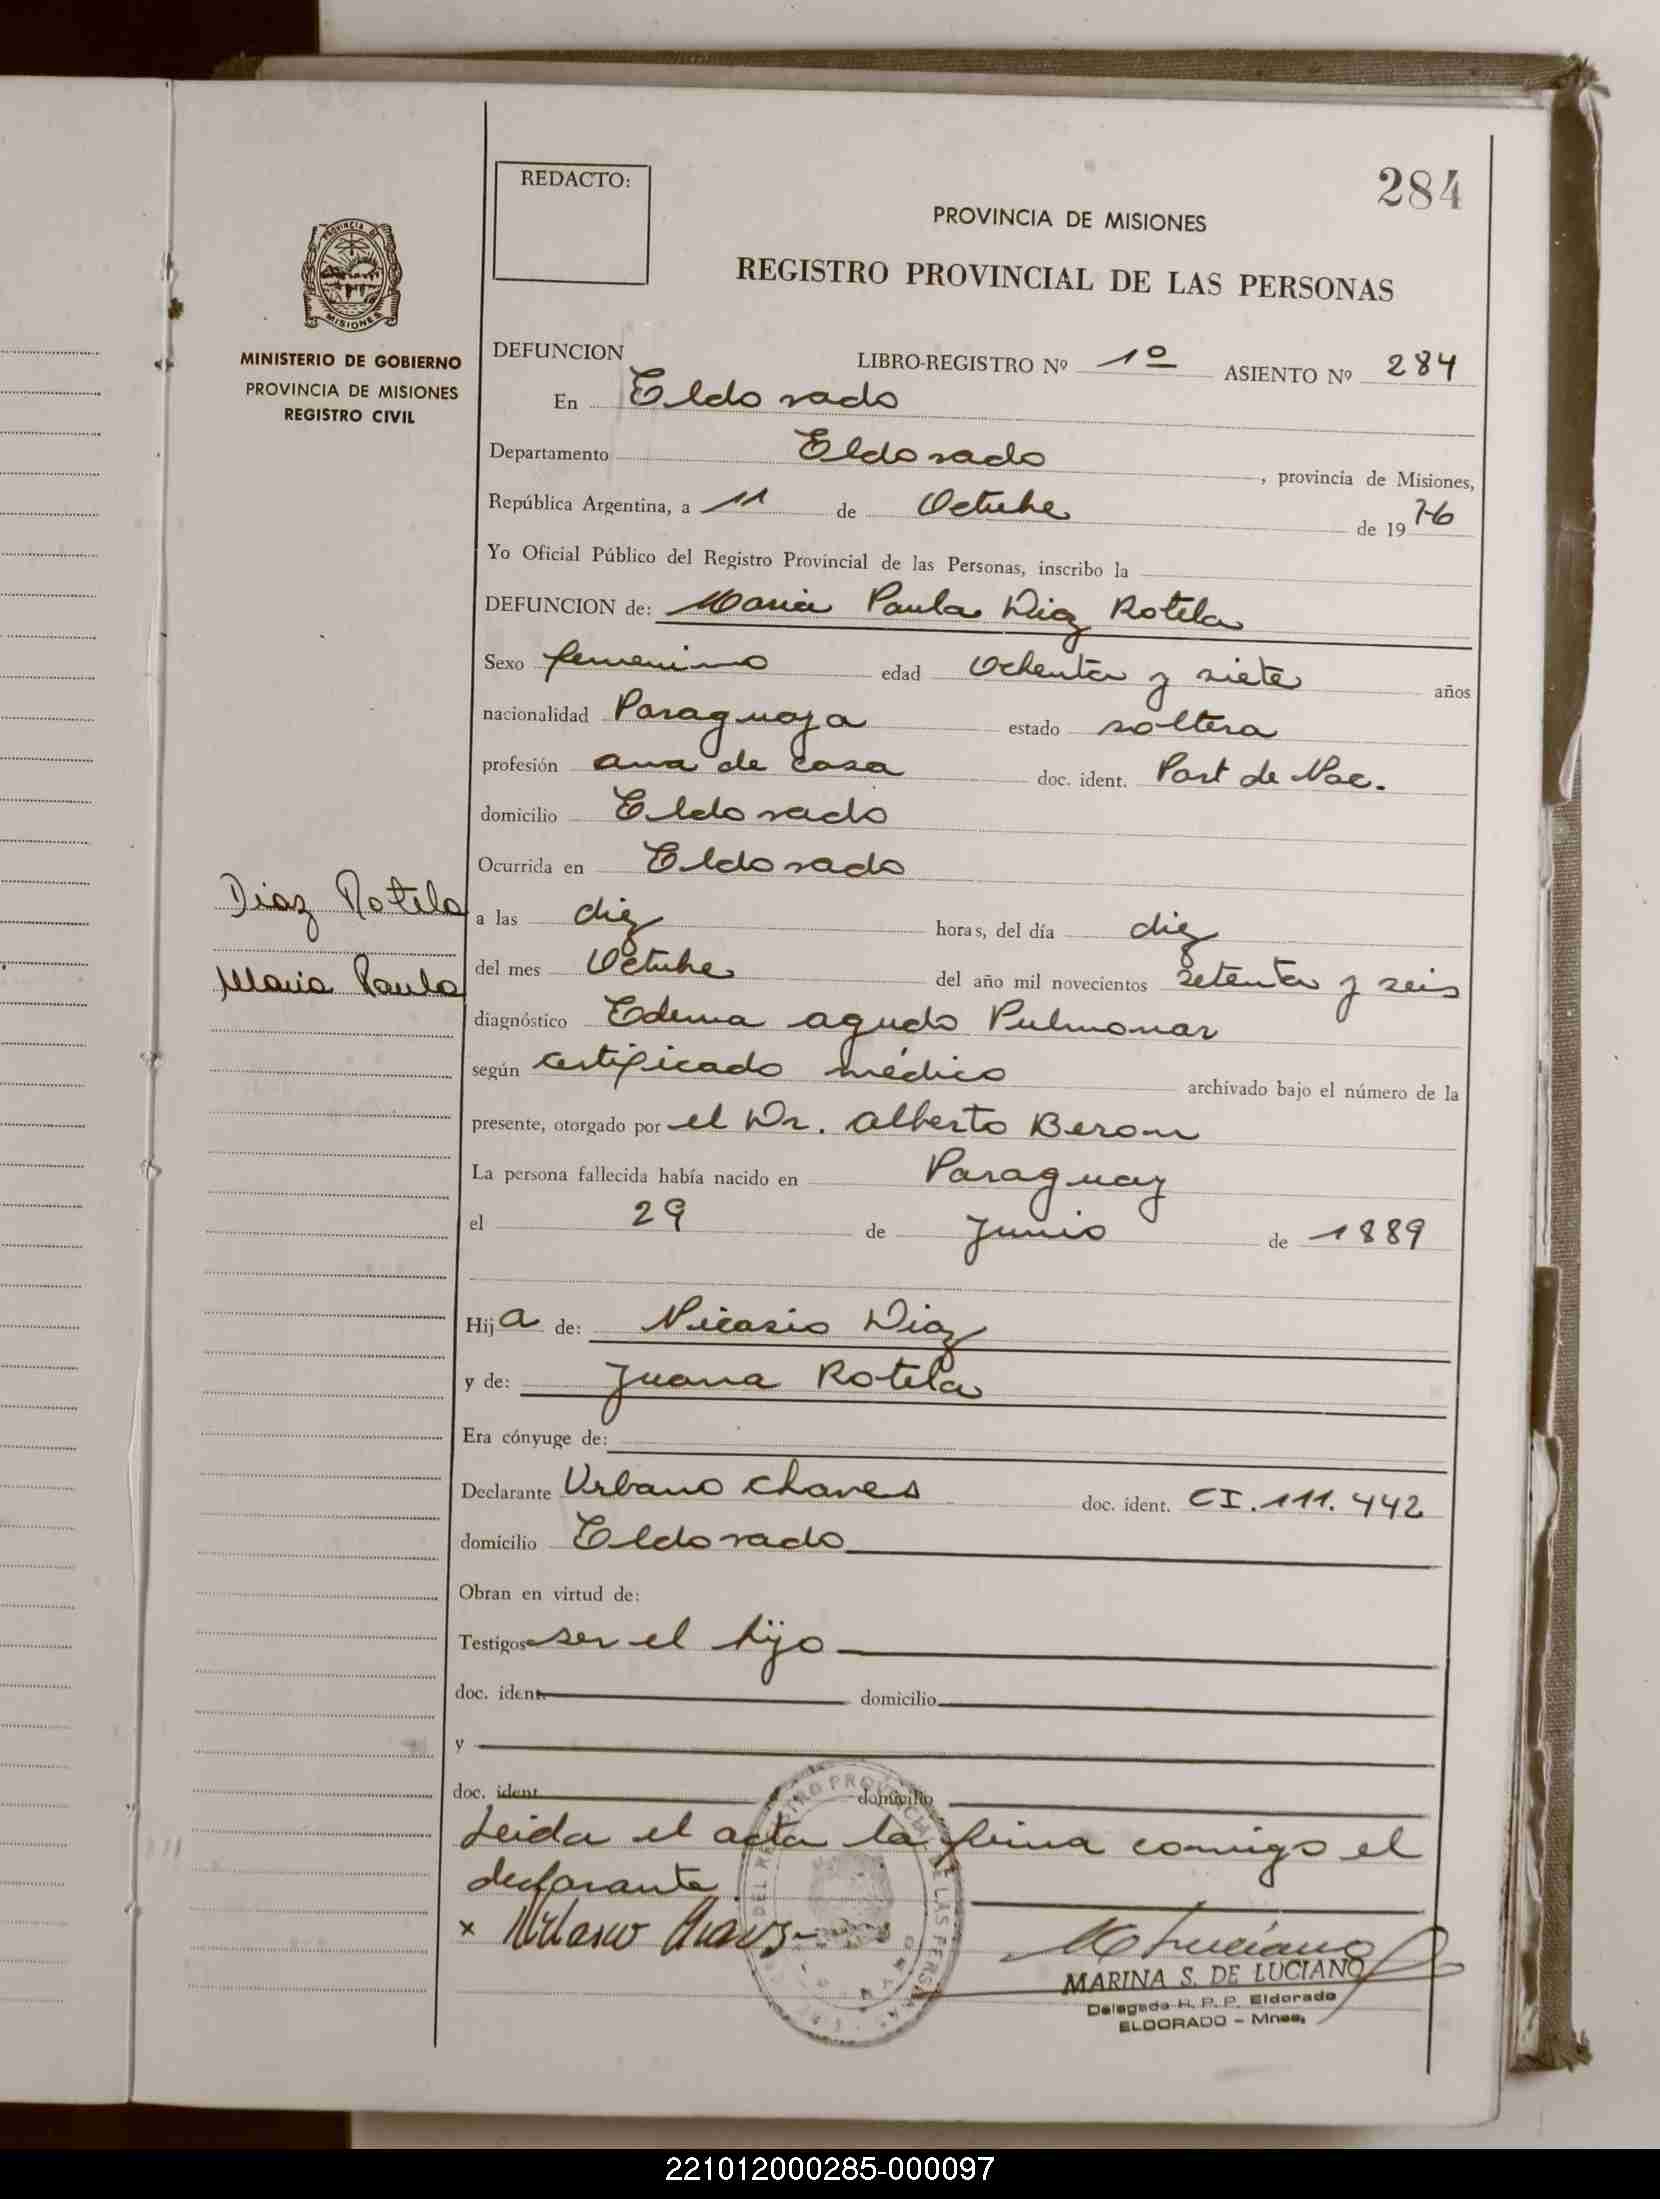 284
REDACTO:
PROVINCIA DE MISIONES
REGISTRO PROVINCIAL DE LAS PERSONAS
PROVINCIA DE
MISIONES
MINISTERIO DE GOBIERNO
PROVINCIA DE MISIONES
REGISTRO CIVIL
DEFUNCION LIBRO-REGISTRO Nº 1º ASIENTO Nº 284
En Eldorado
Departamento Eldorado, provincia de Misiones,
República Argentina, a 11 de Octubre de 1976
Yo Oficial Público del Registro Provincial de las Personas, inscribo la
DEFUNCION de: Maria Paula Diaz Rotela
Sexo femenino edad Ochenta y siete años
nacionalidad Paraguaya estado soltera
profesión ama de casa doc. ident. Part de Nac.
domicilio Eldorado
Ocurrida en Eldorado
Diaz Rotela
Maria Paula
a las diez horas, del día diez
del mes Octubre del año mil novecientos setenta y seis
diagnóstico Edema agudo Pulmonar
según certificado médico archivado bajo el número de la
presente, otorgado por el Dr. Alberto Beron
La persona fallecida había nacido en Paraguay
el 29 de Junio de 1889
Hija de: Nicasio Diaz
y de: Juana Rotela
Era cónyuge de:
Declarante Urbano Chaves doc. ident. CI. 111.442
domicilio Eldorado
Obran en virtud de:
Testigos ser el hijo
doc. ident. domicilio
y
doc. ident. domicilio
Leida el acta la firma comigo el
declarante
x Urbano Chaves
MARINA S. DE LUCIANO
Delegada R. P. P. Eldorado
ELDORADO - Mnes.
221012000285-000097